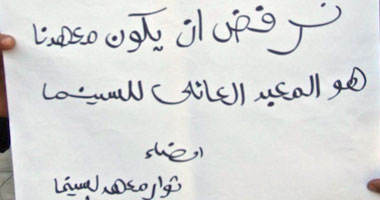 نرفض ان يكون معهدنا
هو المعبد العائلى للسينما
امضاء
ثوار معهد السينما